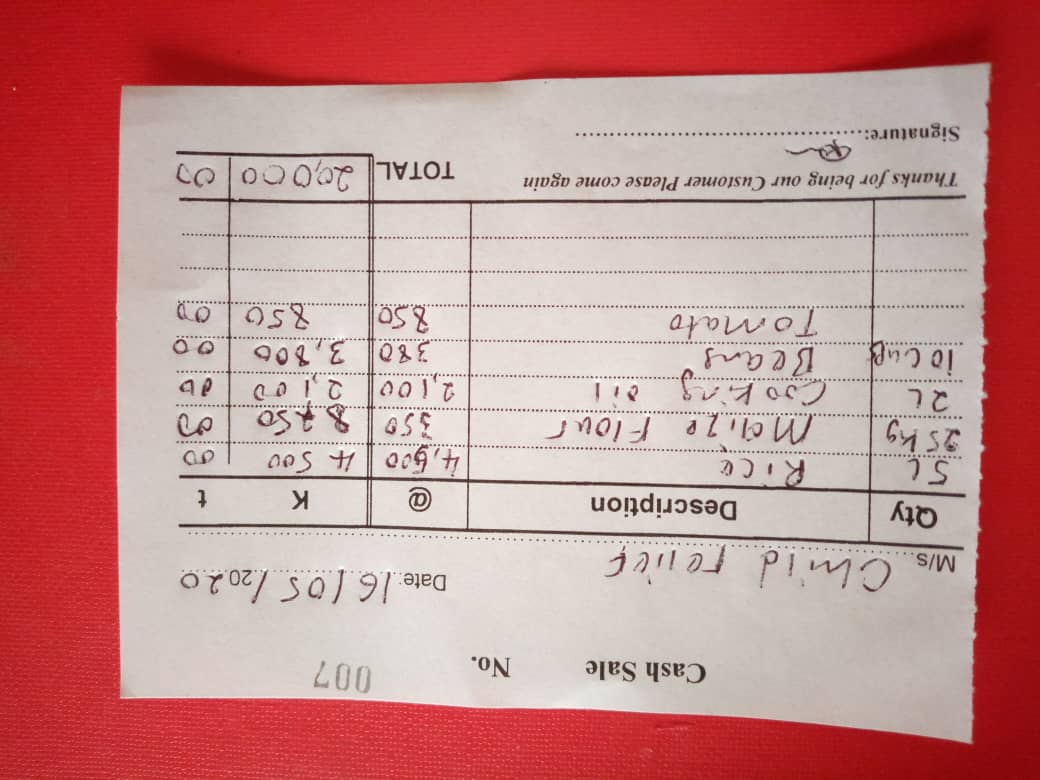 Cash Sale No. 007
Date: 16/05/2020
M/s. Child relief
Qty Description @ K t
5L Rice 4,500 4 500 00
25kg Maize Flour 350 8750 00
2L Cooking oil 2,100 2,100 00
10 cups Beans 380 3,800 00
Tomato 850 850 00
Thanks for being our Customer Please come again TOTAL 20,000 00
Signature: